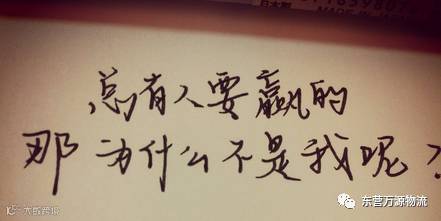 总有人要赢的
那为什么不是我呢?
东营万源物流
大数跨境